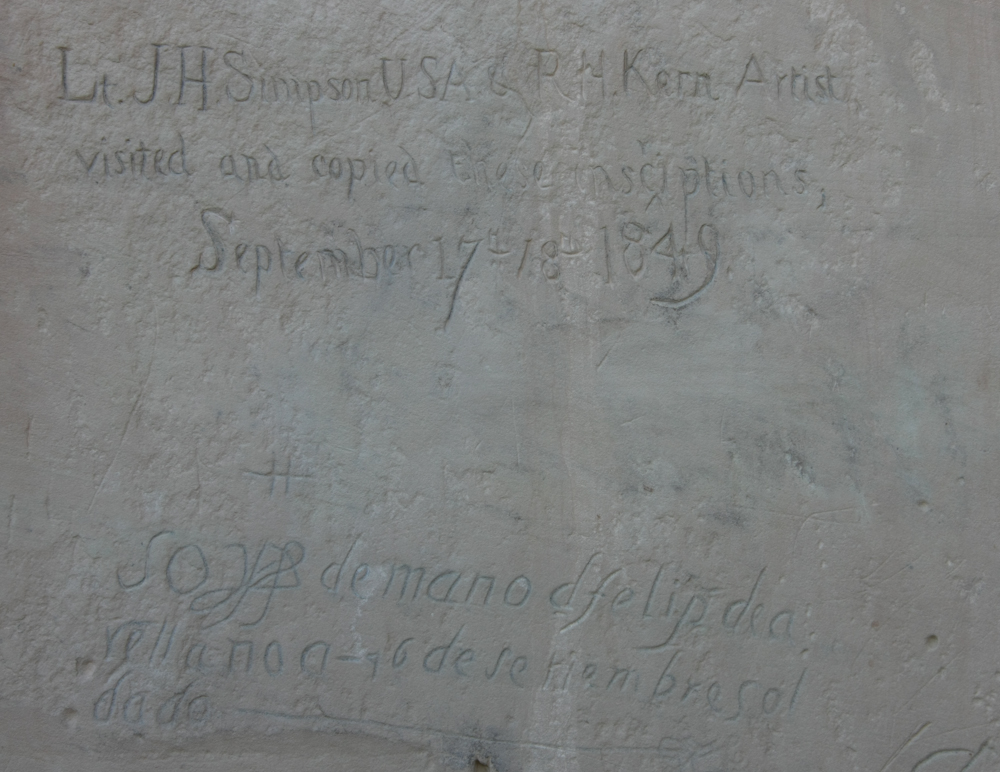 Lt. J.H. Simpson U.S.A. & R.H. Kern Artist,
visited and copied these insciptions,
September 17th 18th 1849.
Soy de mano d felipe de a
rellano a 16 de setiembre sol
dado